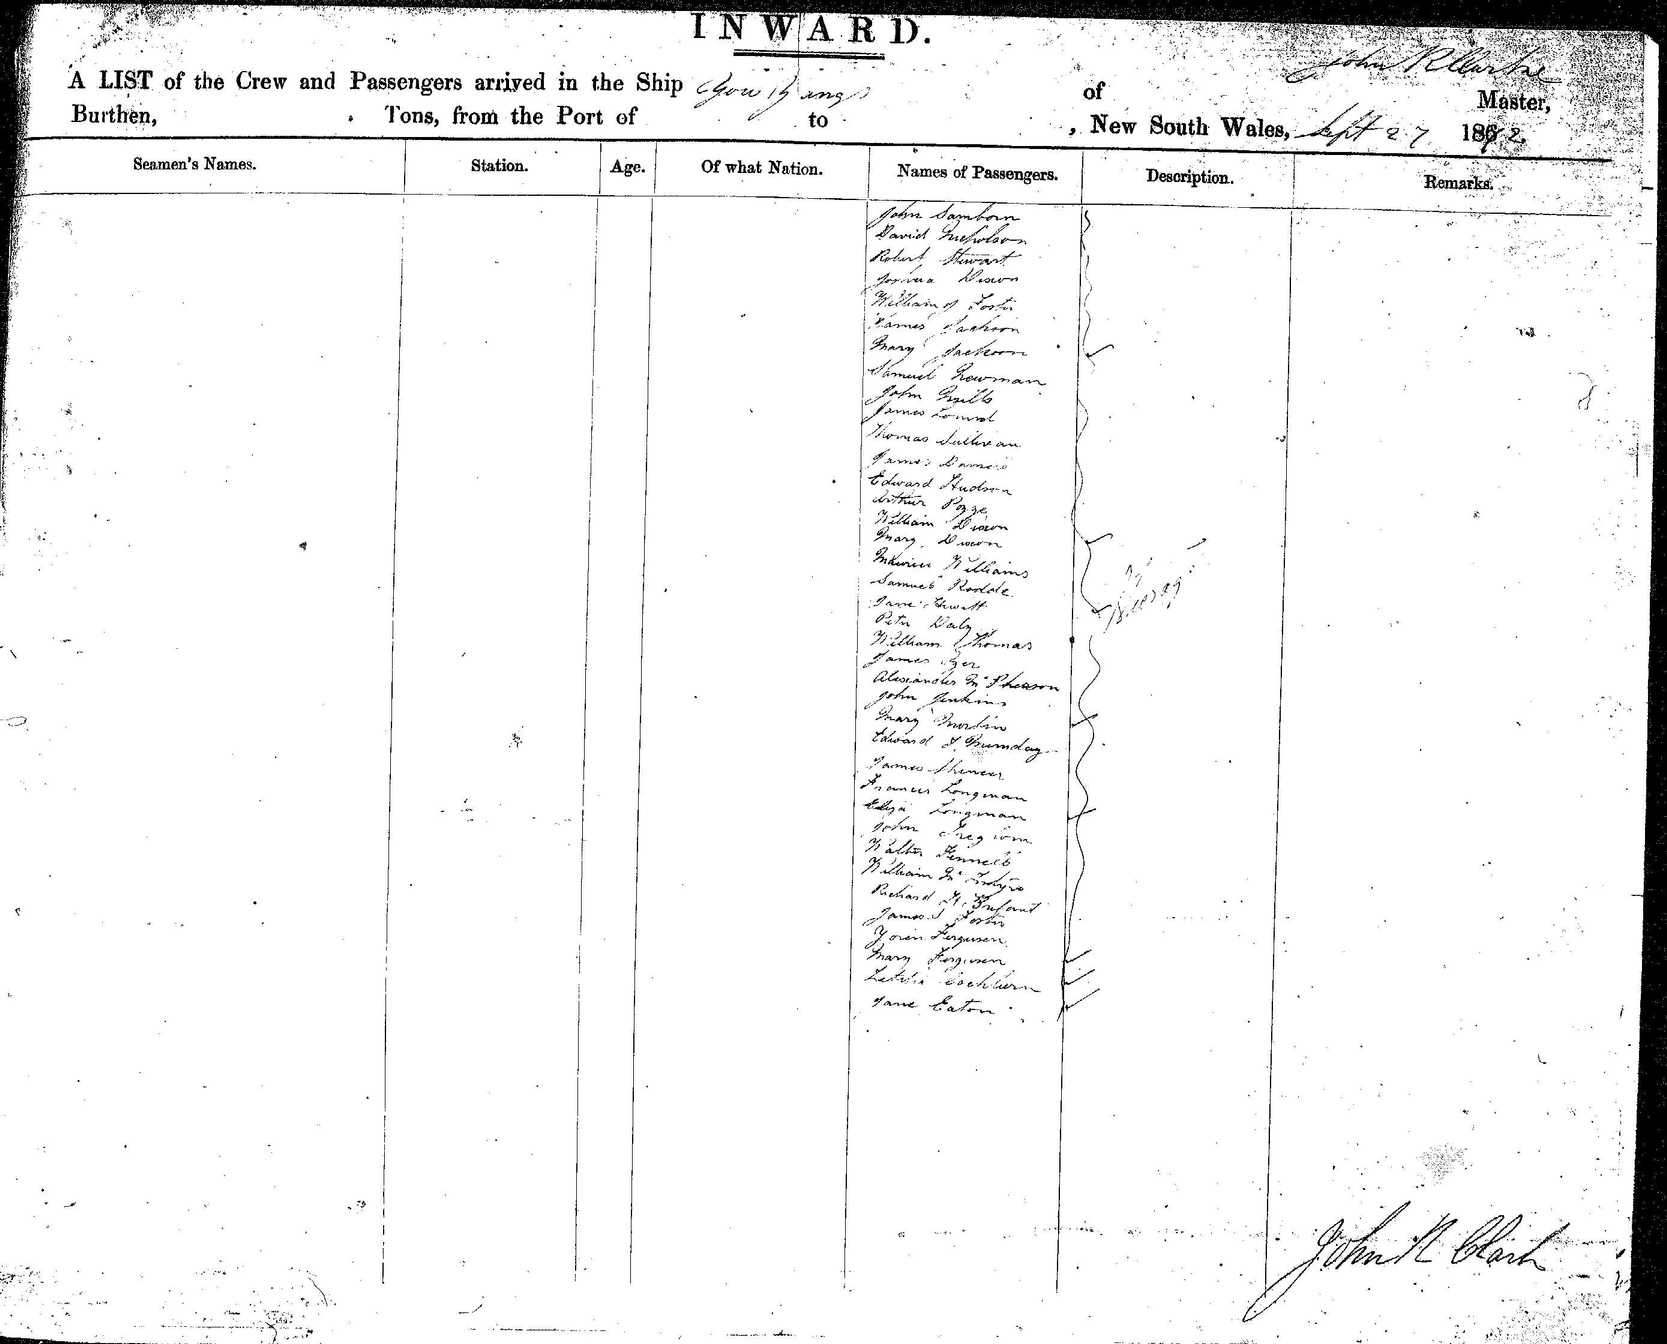 INWARD.
A LIST of the Crew and Passengers arrived in the Ship You Yangs of John R Clarke Master,
Burthen, Tons, from the Port of to , New South Wales, Sept 27 1872.
Seamen's Names. Station. Age. Of what Nation. Names of Passengers. Description. Remarks.
John Samborn
David Nicholson
Robert Stewart
Joshua Dixon
William J Foster
James Jackson
Mary Jackson
Samuel Newman
John Mills
James
Thomas Sullivan
James
Edward Hudson
Arthur
William Dixon
Mary Dixon
Maurice Williams
Samuel Rodde
Jane
Peter Daly
William Thomas
James
Alexander McPherson
John Jenkins
Mary
Edward J.
James
Francis Longman
Eliza Longman
John
Walter Fennell
William
Richard
James J Foster
Ferguson
Mary Ferguson
Letitia Cockburn
Jane Eaton
Steerage
John R Clark